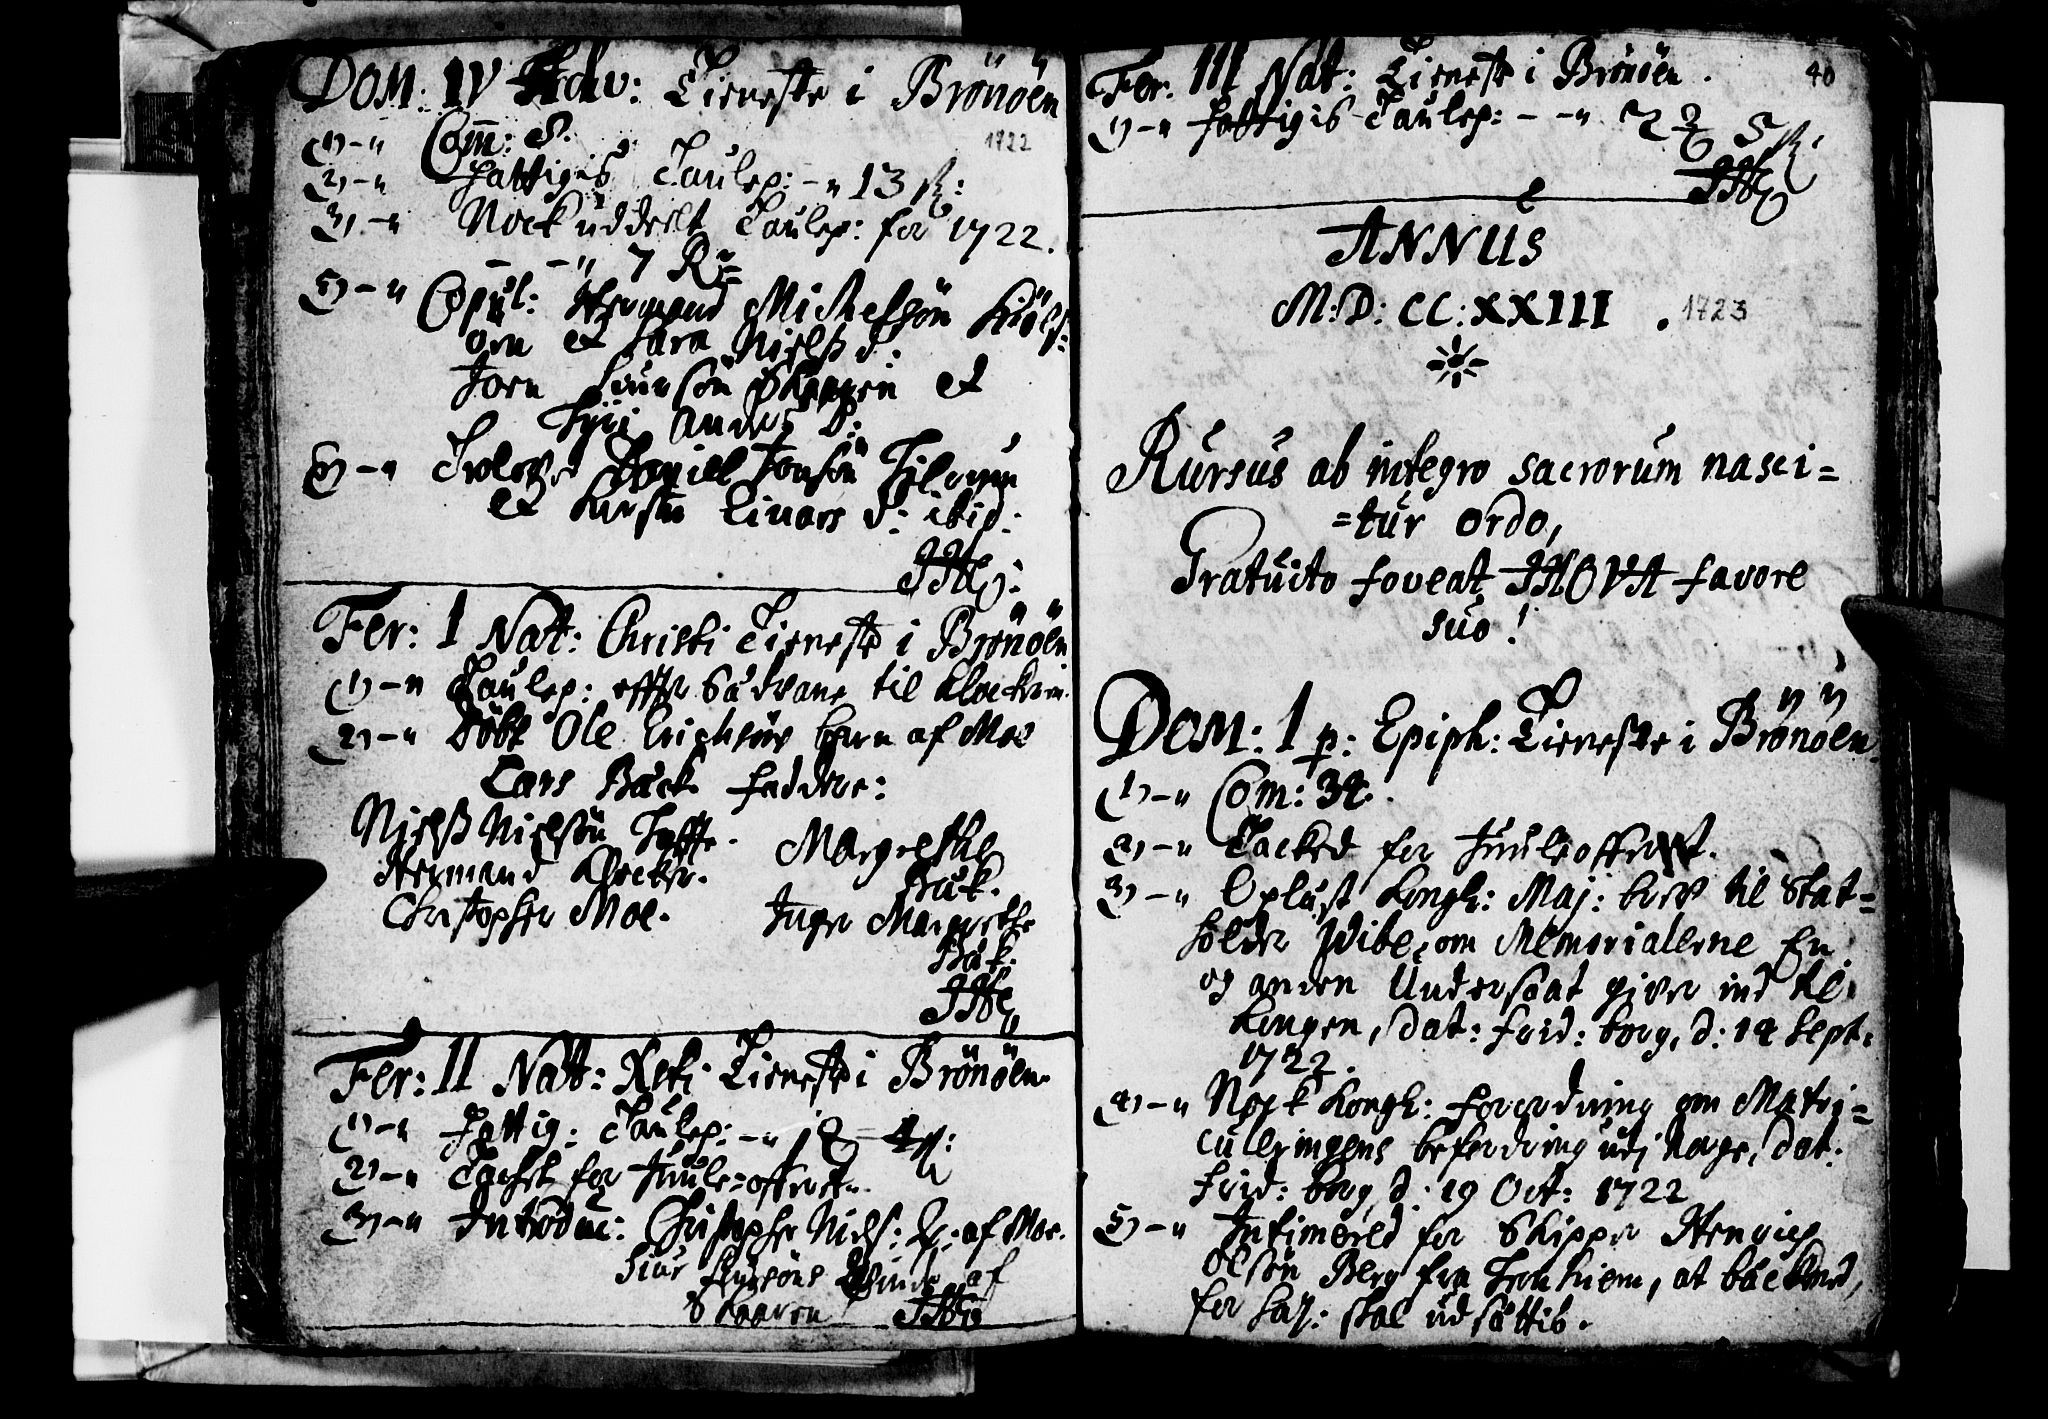 DOM: IV Adv: Tieneste i Brönöen
1722
1) -" Com̄: 8.
2) -" fattigis Taulep: -" 13 sk:
3) -" Nock uddeelt Taulep: for 1722.
- -" 7 R
5) -" Copul: Hermand Michelsön
et Sara Nielß d:
Joen Siursön Skaaren et
Siri Anders D:
6) -" Trolov: Daniel Jonsön Tilrum
et Kirsten Eivars d: ibid:
Fer: I Nat: Christi Tieneste i Brönöen
1) -" Taulep: effter Sædvane til Klockeren.
2) -" Döbt Ole Erichsöns barn af Moe
Lars Bäck. faddere:
Nielß Nielsön Toffte. Margrethe
Hermand Klocker. Bäck.
Christopher Moe. Inger Margrethe
Bäk.
Fer: II Nat: Xsti Tieneste i Brönöen.
1) -" fattig: Taulep: -"
2) -" Tachet for Juule-offeret.
3) -" Introduc: Christopher Niels: Q: af Moe.
Siur Siursöns Qvinde af
Skaaren
Fer: III Nat: Tieneste i Brönöen. 40
1) -" fattigis Taulep: - -"
ANNUS
M:D: CC:XXIII . 1723
Rursus ab integro sacrorum nasci=
=tur ordo,
Gratuito foveat IHOVA favore
suo!
DOM: 1 p: Epiph: Tieneste i Brönöen
1) -" Com: 34.
2) -" Tacked for Juuleofferet.
3) -" Oplæst Kongl: Maj: brev til Stat=
holder Wibe, om Memorialerne En
og anden Undersaat giver ind til
Kongen, dat: Frid: borg, d: 14 Sept:
1722.
4) -" Nock Kongl: forordning om Matri=
culeringens befordring udj Norge, dat:
Frid: borg, d: 19 Oct: 1722
5) -" Intimered for Skipper Henrich
Olsön Berg fra Tronhiem, at bäckned,
for Saz: skal udsättis.